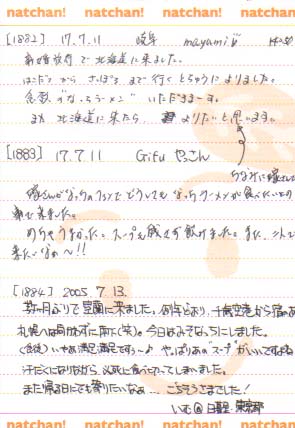 natchan! natchan! natchan! natchan!
[1882] 17.7.11 岐阜 mayumi 14:50
新婚旅行で北海道に来ました。
はこだてから さっぽろまで行くとちゅうによりました。
念願の"なっちラーメン" いただきまーす。
また北海道に来たら よりたいと思います。
[1883] 17.7.11 Gifu やっこん
ちなみに嫁さん
嫁さんがなっちのファンでどうしてもなっちラーメンが食べたいとの
事で来ました。
めちゃうまかった。スープも残さず飲けました。また、
来たいなぁ〜!!
[1884] 2005.7.13.
数ヶ月ぶりで室蘭に来ました。例年どおり、千歳空港から宿のある
札幌へは向かわずに南下(笑)。今日はみそなっちにしました。
(食後) いやぁ満足満足ですぅ〜♪ やっぱりあの"スープ"がいいですよね
汗だくになりながら 必死に食べ切ってしまいました。
また帰る日にでも寄りたいなぁ… ごちそうさまでした!
いむ@日野・東京都
natchan! natchan! natchan! natchan!